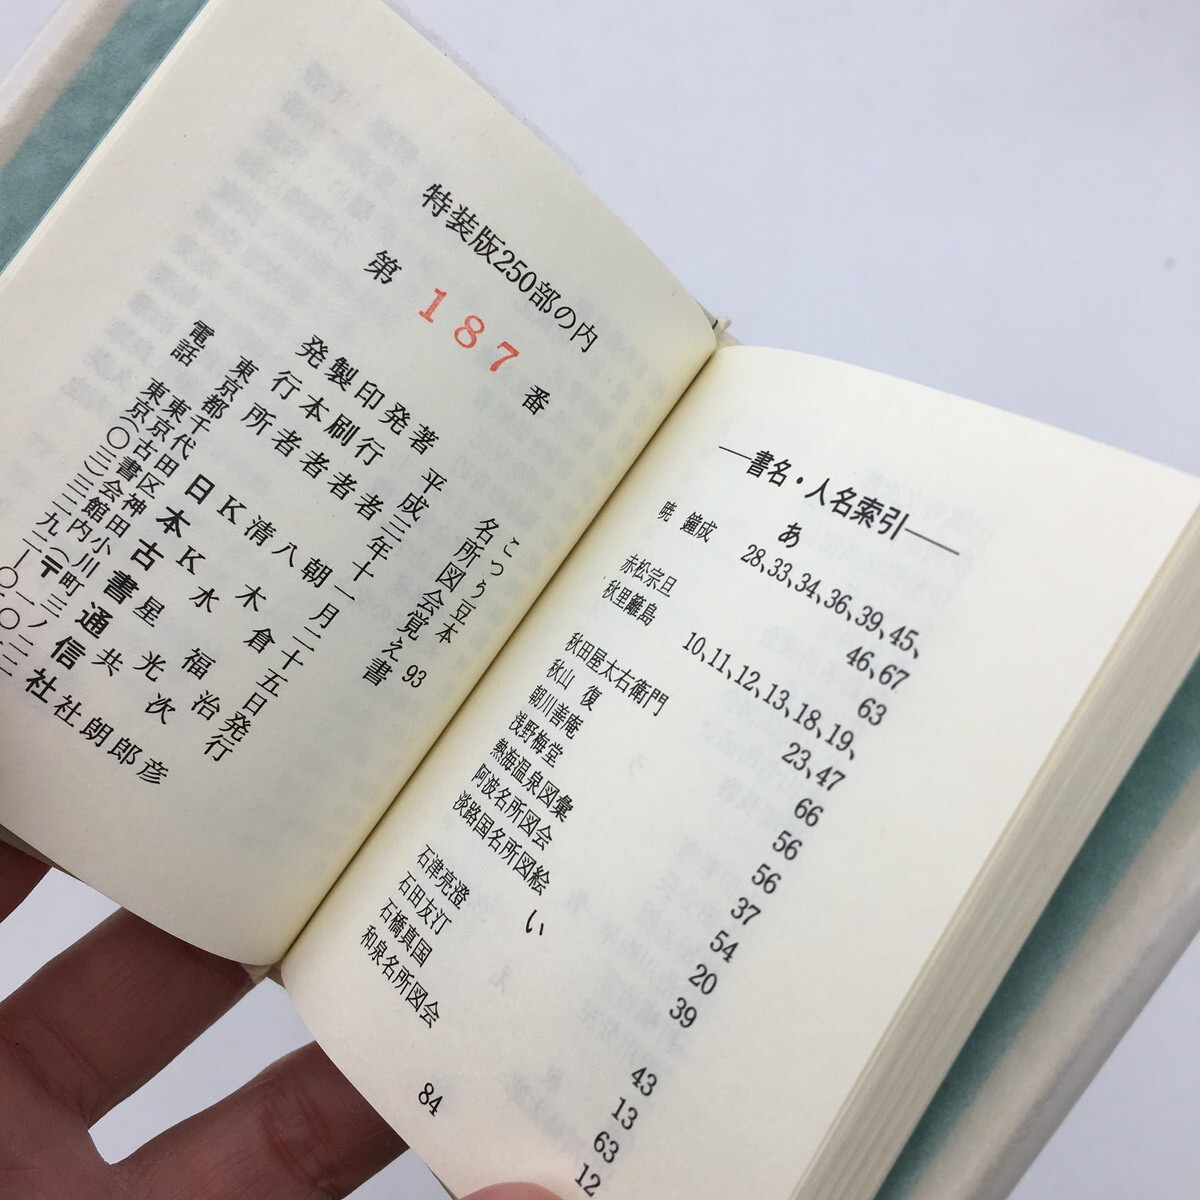 特装版250部の内
第 187 番
こつう豆本 93
名所図会覚え書
平成三年十一月二十五日発行
著者 朝倉治彦
発行者 八木福次郎
印刷者 清水光朗
製本者 KK星共社
発行所 日本古書通信社
東京都千代田区神田小川町三ノ
東京古書会館内
電話 東京(〇三)
―書名・人名索引―
あ
暁 鐘成 28、33、34、36、39、45、
46、67
赤松宗旦 63
秋里籬島 10、11、12、13、18、19、
23、47
秋田屋太右衛門 66
秋山 復 56
朝川善庵 56
浅野梅堂 37
熱海温泉図彙 54
阿波名所図会 20
淡路国名所図絵 39
い
石津亮澄 43
石田友汀 13
石橋真国 63
和泉名所図会 12
84